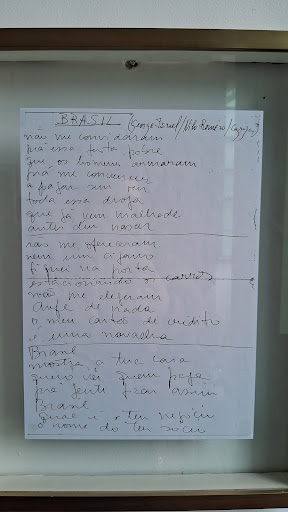 BRASIL (George Israel/Nilo Romero/Cazuza)
não me convidaram
pra essa festa pobre
que os homens armaram
pra me convencer
a pagar sem ver
toda essa droga
que já vem malhada
antes deu nascer
não me ofereceram
nem um cigarro
fiquei na porta
estacionando os carros
não me elegeram
chefe de nada
o meu cartão de crédito
é uma navalha
Brasil
mostra a tua cara
quero vê quem paga
pra gente ficar assim
Brasil
qual é o teu negócio
o nome do teu sócio